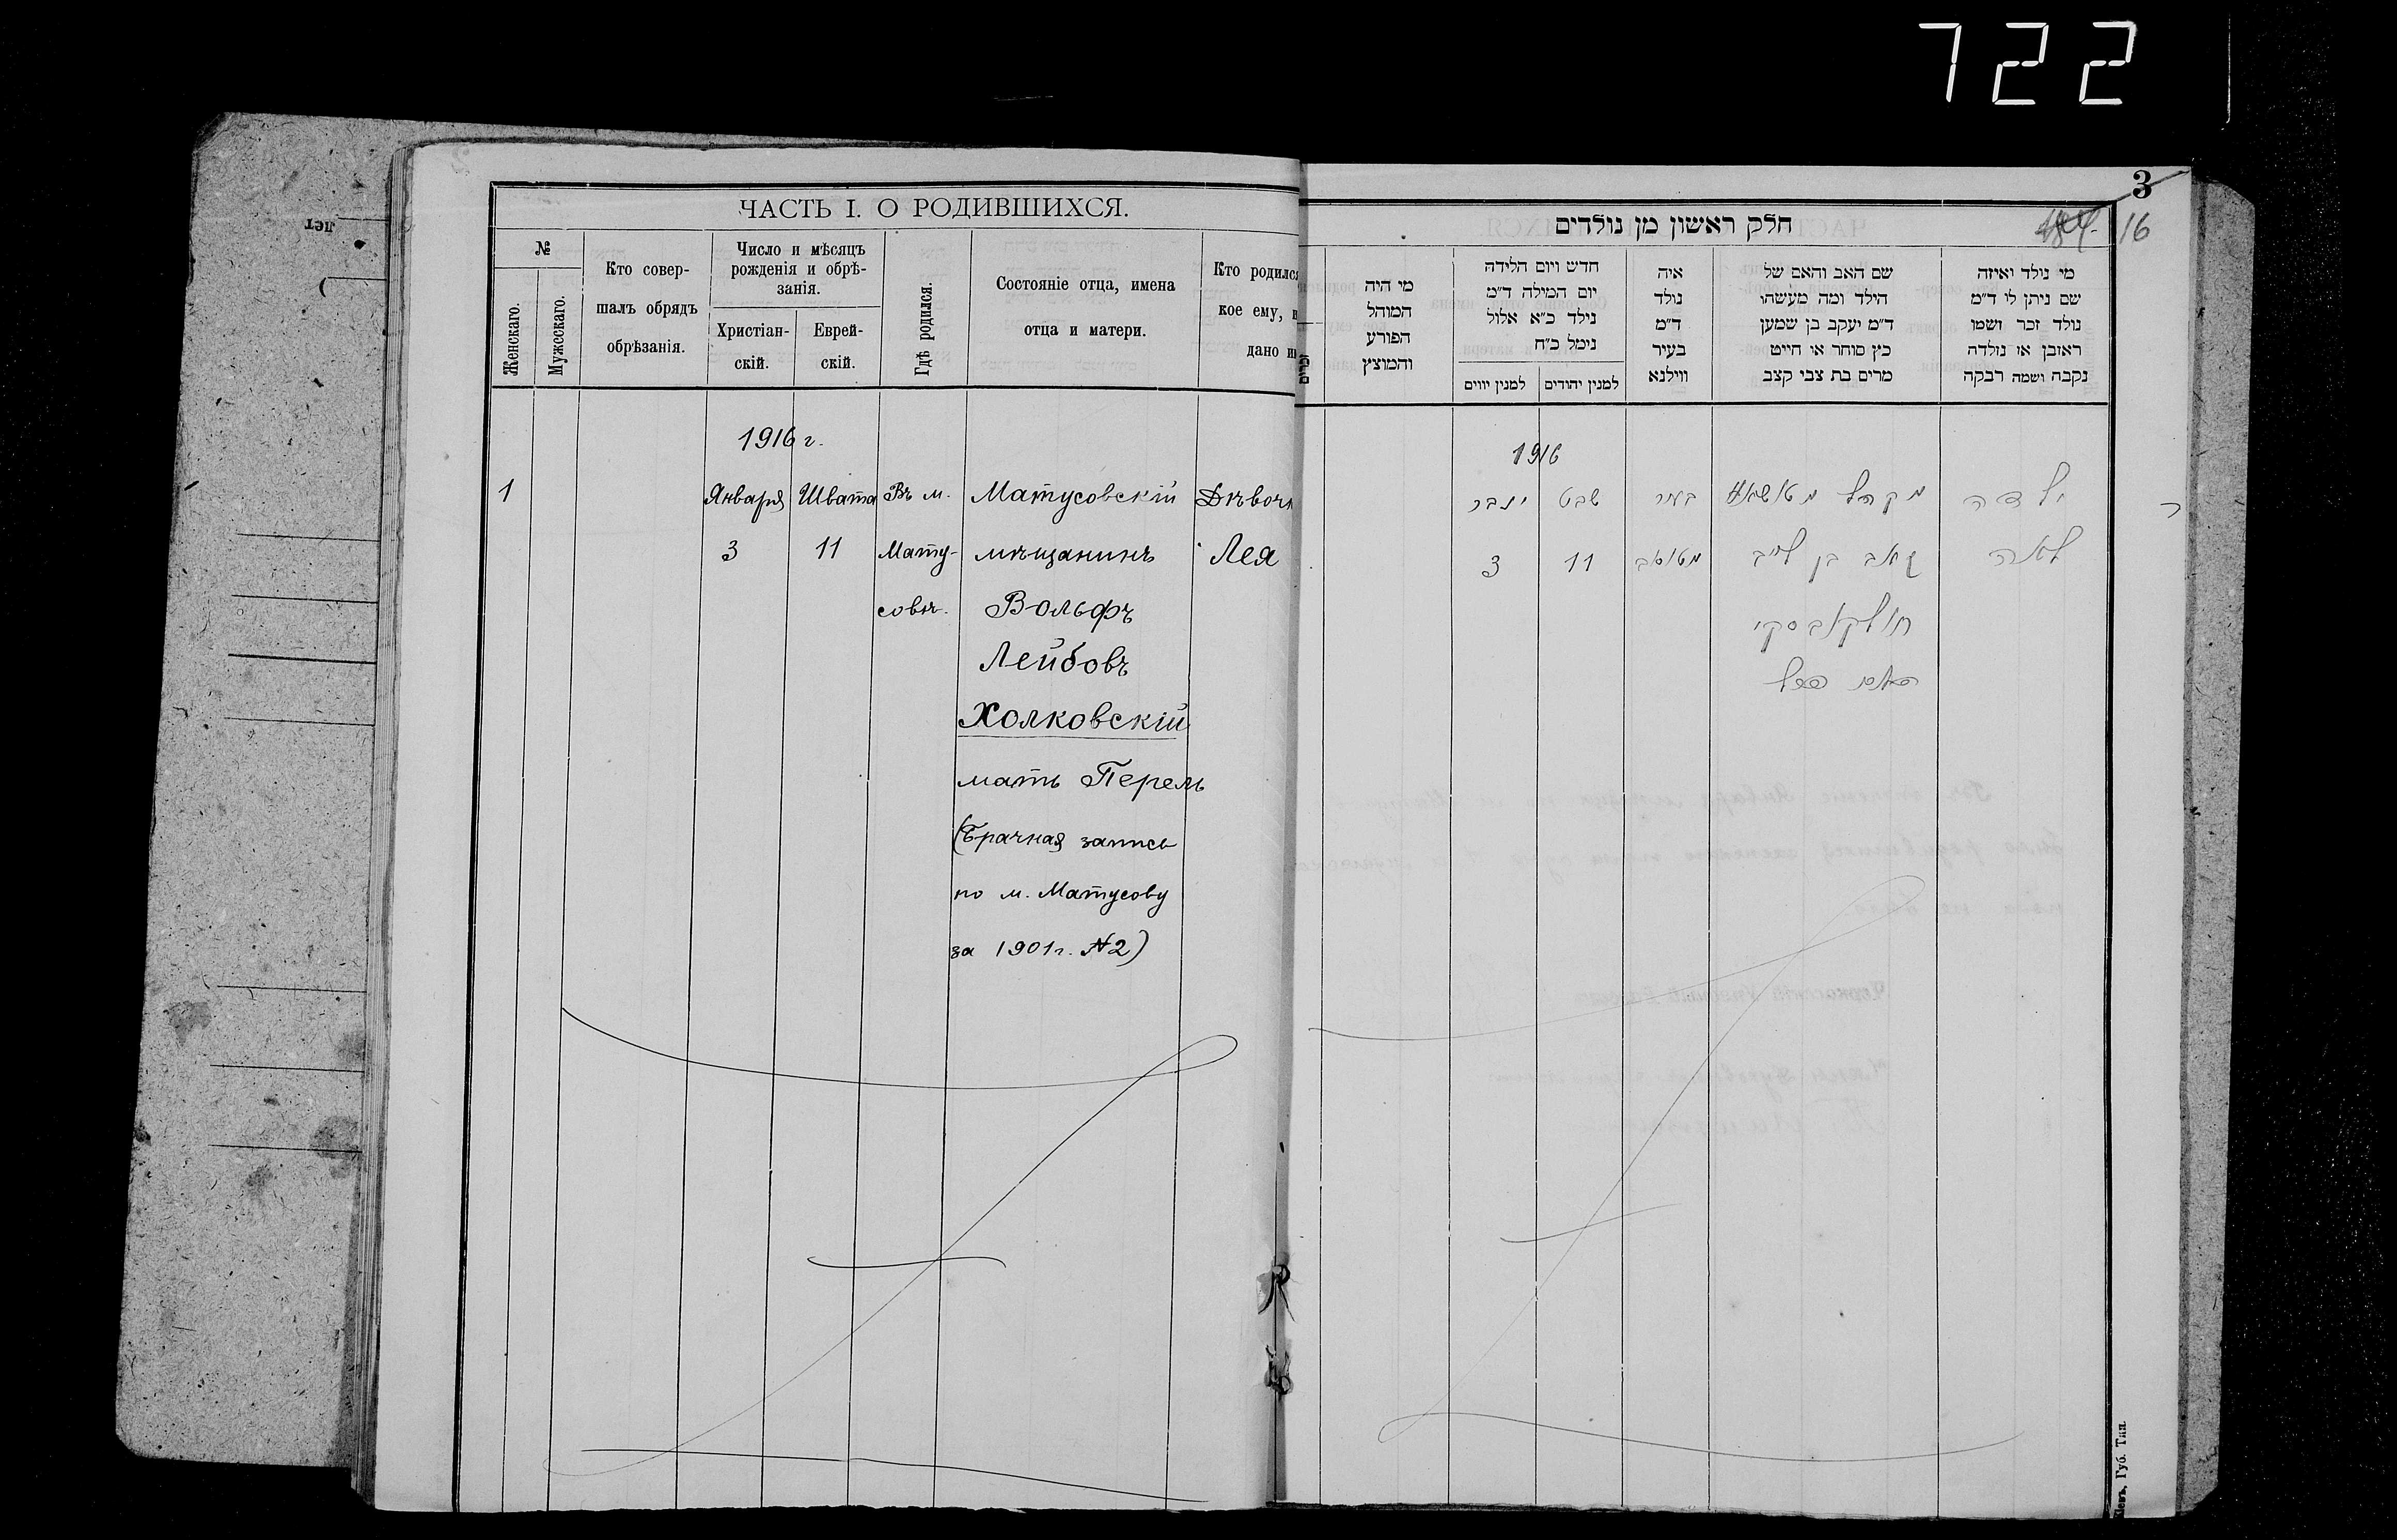 722
ЧАСТЬ I. О РОДИВШИХСЯ.
№
Женскаго.
Мужескаго.
Кто совер-
шалъ обрядъ
обрѣзанія.
Число и мѣсяцъ
рожденія и обрѣ-
занія.
Христіан-
скій.
Еврей-
скій.
Гдѣ родился.
Состояніе отца, имена
отца и матери.
Кто родился
кое ему, и
дано и
1916 г.
1
Января
3
Швата
11
Въ м.
Мату-
совѣ.
Матусовскій
мѣщанинъ
Вольфъ
Лейбовъ
Холковскій
мать Перель
(Брачная запись
по м. Матусову
за 1901 г. №2)
Дѣвочк
Лея
3
16
חלק ראשון מן נולדים
מי נולד ואיזה
שם ניתן לו ד״מ
נולד זכר ושמו
ראובן או נולדה
נקבה ושמה רבקה
שם האב והאם של
הילד ומה מעשהו
ד״מ יעקב בן שמען
כץ סוחר או חייט
מרים בת צבי קצב
איה
נולד
ד״מ
בעיר
ווילנא
חדש ויום הלידה
יום המילה ד״מ
נילד כ״א אלול
נימל כ״ח
למנין יהודים
למנין יווים
מי היה
המוהל
הפורע
והמוצץ
1916
ילדה
לאה
מקהל
זאב בן לייב
חולקאבסקי
האם פערל
בעיר
שבט
11
ינבר
3
Кіевъ, Губ. Тип.
лет